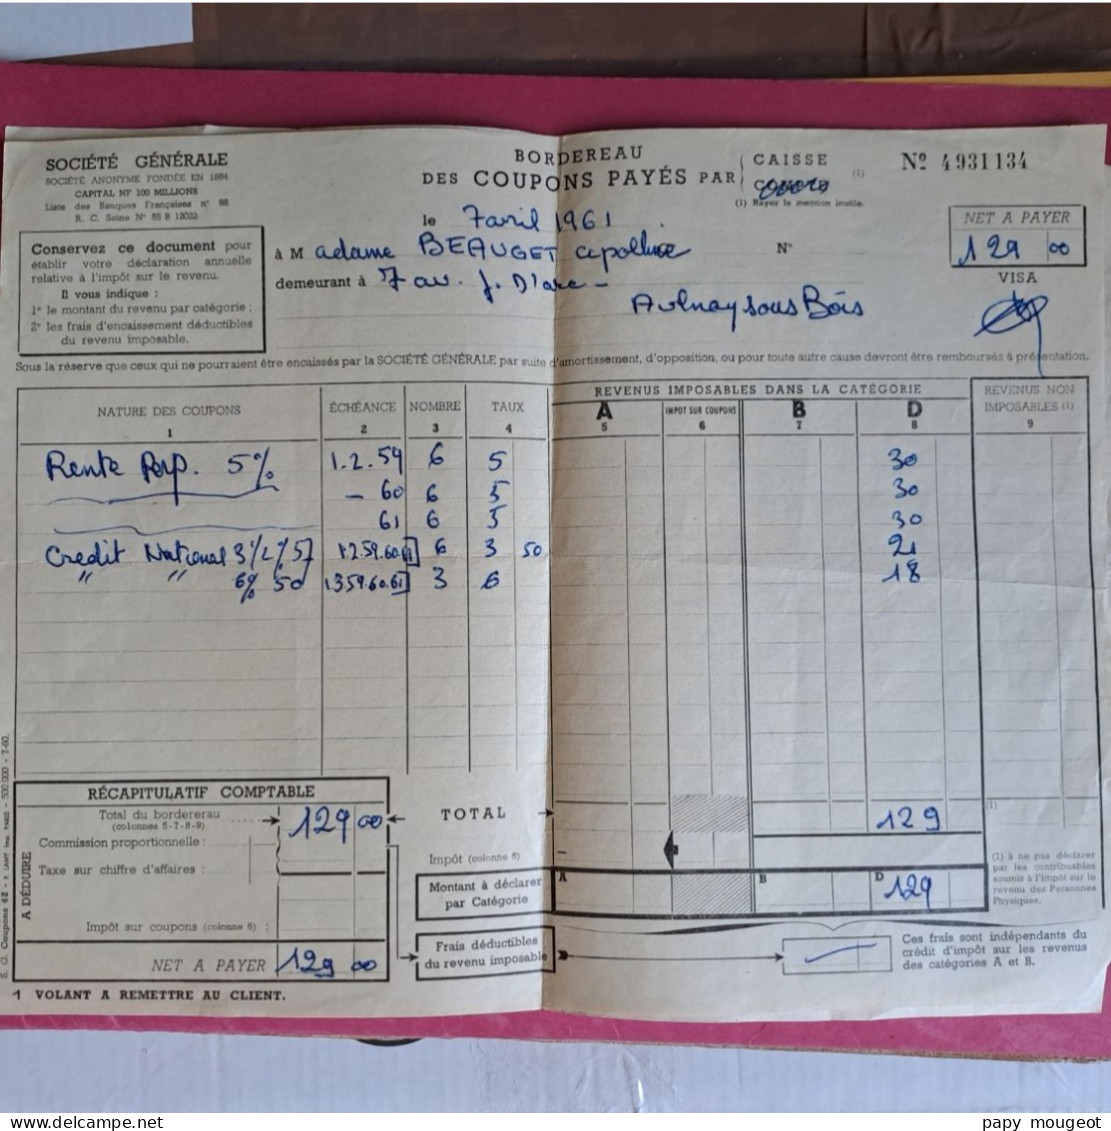 SOCIÉTÉ GÉNÉRALE
SOCIÉTÉ ANONYME FONDÉE EN 1864
CAPITAL NF 100 MILLIONS
Liste des Banques Françaises n° 66
R. C. Seine N° 55 B 13032
BORDEREAU
DES COUPONS PAYÉS PAR
CAISSE
(1)
(1) Rayer la mention inutile.
Nº 4931134
le 7 avril 1961
NET A PAYER
129 00
Conservez ce document pour
établir votre déclaration annuelle
relative à l'impôt sur le revenu.
Il vous indique :
1° le montant du revenu par catégorie ;
2° les frais d'encaissement déductibles
du revenu imposable.
à Madame BEAUGET Apolline N°
demeurant à 7 av. J. D'arc -
Aulnay sous Bois
VISA
Sous la réserve que ceux qui ne pourraient être encaissés par la SOCIÉTÉ GÉNÉRALE par suite d'amortissement, d'opposition, ou pour toute autre cause devront être remboursés à présentation.
REVENUS IMPOSABLES DANS LA CATÉGORIE
REVENUS NON
IMPOSABLES (1)
NATURE DES COUPONS ÉCHÉANCE NOMBRE TAUX A IMPOT SUR COUPONS B D
1 2 3 4 5 6 7 8 9
Rente Perp. 5% 1.2.59 6 5 30
- 60 6 5 30
61 6 5 30
Credit National 3 1/2 % 57 1.2 59.60.61 6 3 50 21
" " 6% 50 1.3 59.60.61 3 6 18
RÉCAPITULATIF COMPTABLE
Total du bordererau
(colonnes 5-7-8-9)
129 00
TOTAL
129
(1)
Commission proportionnelle :
Taxe sur chiffre d'affaires :
A DÉDUIRE
Impôt (colonne 6) -
Montant à déclarer
par Catégorie
A B D 129
(1) à ne pas déclarer
par les contribuables
soumis à l'impôt sur le
revenu des Personnes
Physiques.
Impôt sur coupons (colonne 6) :
NET A PAYER 129 00
Frais déductibles
du revenu imposable
Ces frais sont indépendants du
crédit d'impôt sur les revenus
des catégories A et B.
1 VOLANT A REMETTRE AU CLIENT.
S. G. Coupons 42 - P. LAINÉ Imp. PARIS - 500.000 - 7-60.
papy mougeot